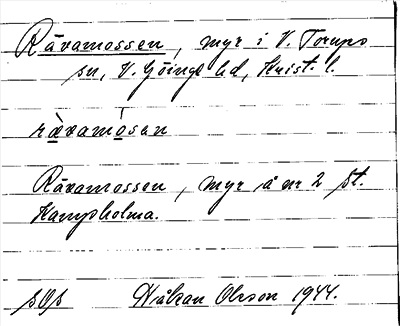 Rävamossen, myr i V. Torups
sn, V. Göinge hd, Krist. l.
rävamosan
Rävamossen, myr å nr 2 St.
Kampholma.
Håkan Olsson 1944.